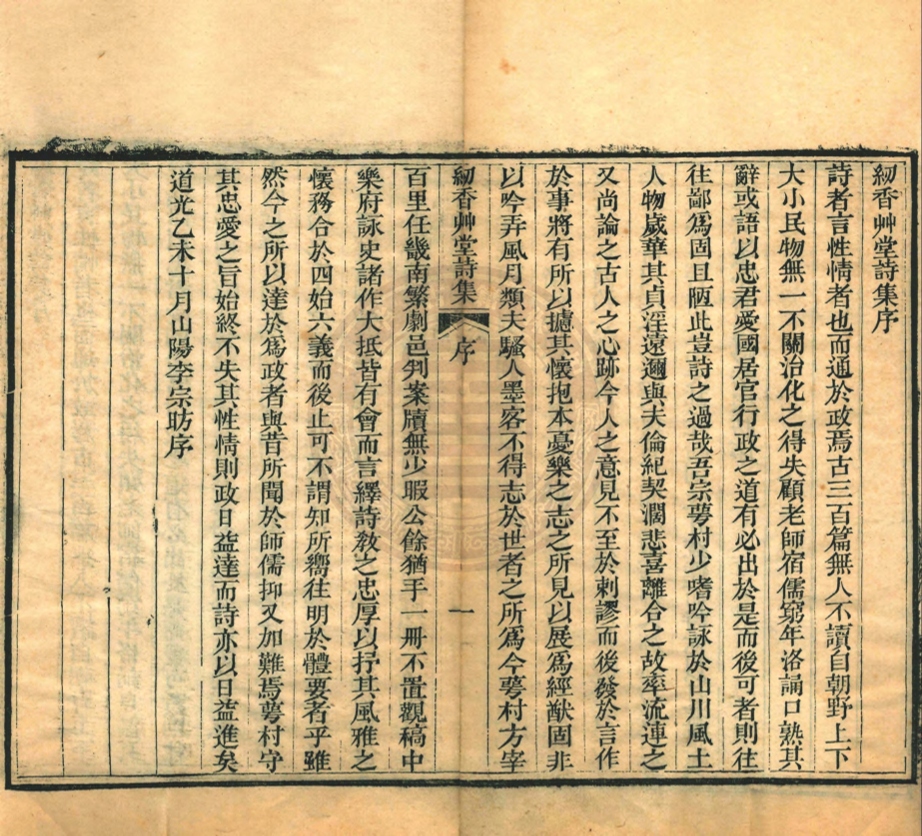 紉香艸堂詩集序
詩者言性情者也而通於政焉古三百篇無人不讀自朝野上下
大小民物無一不關治化之得失顧老師宿儒窮年洛誦口熟其
辭或語以忠君愛國居官行政之道有必出於是而後可者則往
往鄙爲固且陋此豈詩之過哉吾宗夢村少嗜吟詠於山川風土
人物歲華其貞淫遠邇與夫倫紀契濶悲喜離合之故率流連之
又尚論之古人之心跡今人之意見不至於刺謬而後發於言作
於事將有所以攄其懷抱本憂樂之志之所見以展爲經猷固非
以吟弄風月類夫騷人墨客不得志於世者之所爲今夢村方宰
紉香艸堂詩集 序 一
百里任畿南繁劇邑判案牘無少暇公餘猶手一冊不置觀稿中
樂府詠史諸作大抵皆有會而言繹詩敎之忠厚以抒其風雅之
懷務合於四始六義而後止可不謂知所嚮往明於體要者乎雖
然今之所以達於爲政者與昔所聞於師儒抑又加難焉夢村守
其忠愛之旨始終不失其性情則政日益達而詩亦以日益進矣
道光乙未十月山陽李宗昉序